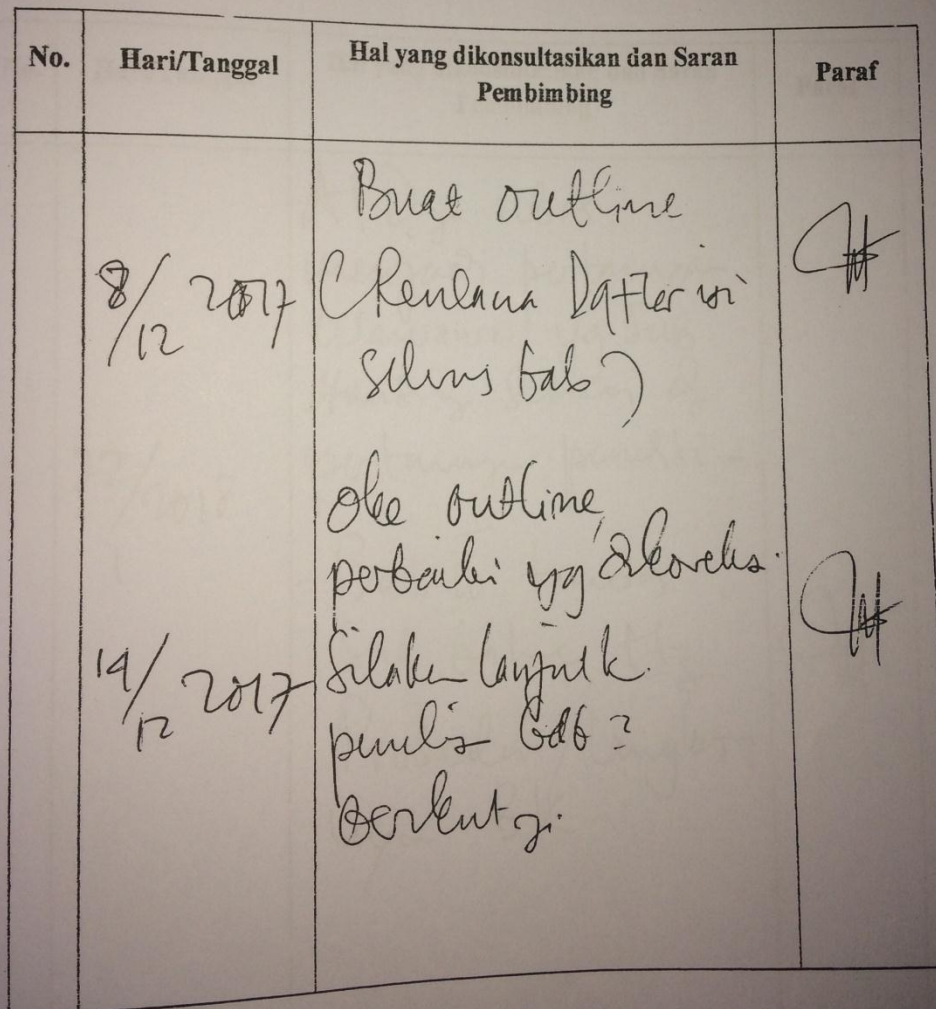 No.
Hari/Tanggal
Hal yang dikonsultasikan dan Saran
Pembimbing
Paraf
8/12 2017
Buat outline
(Rencana Daftar isi
Seluruh bab)
14/12 2017
Oke outline,
perbaiki yg dikoreksi.
Silakan lanjutk
penulis bab2
berikutnya.